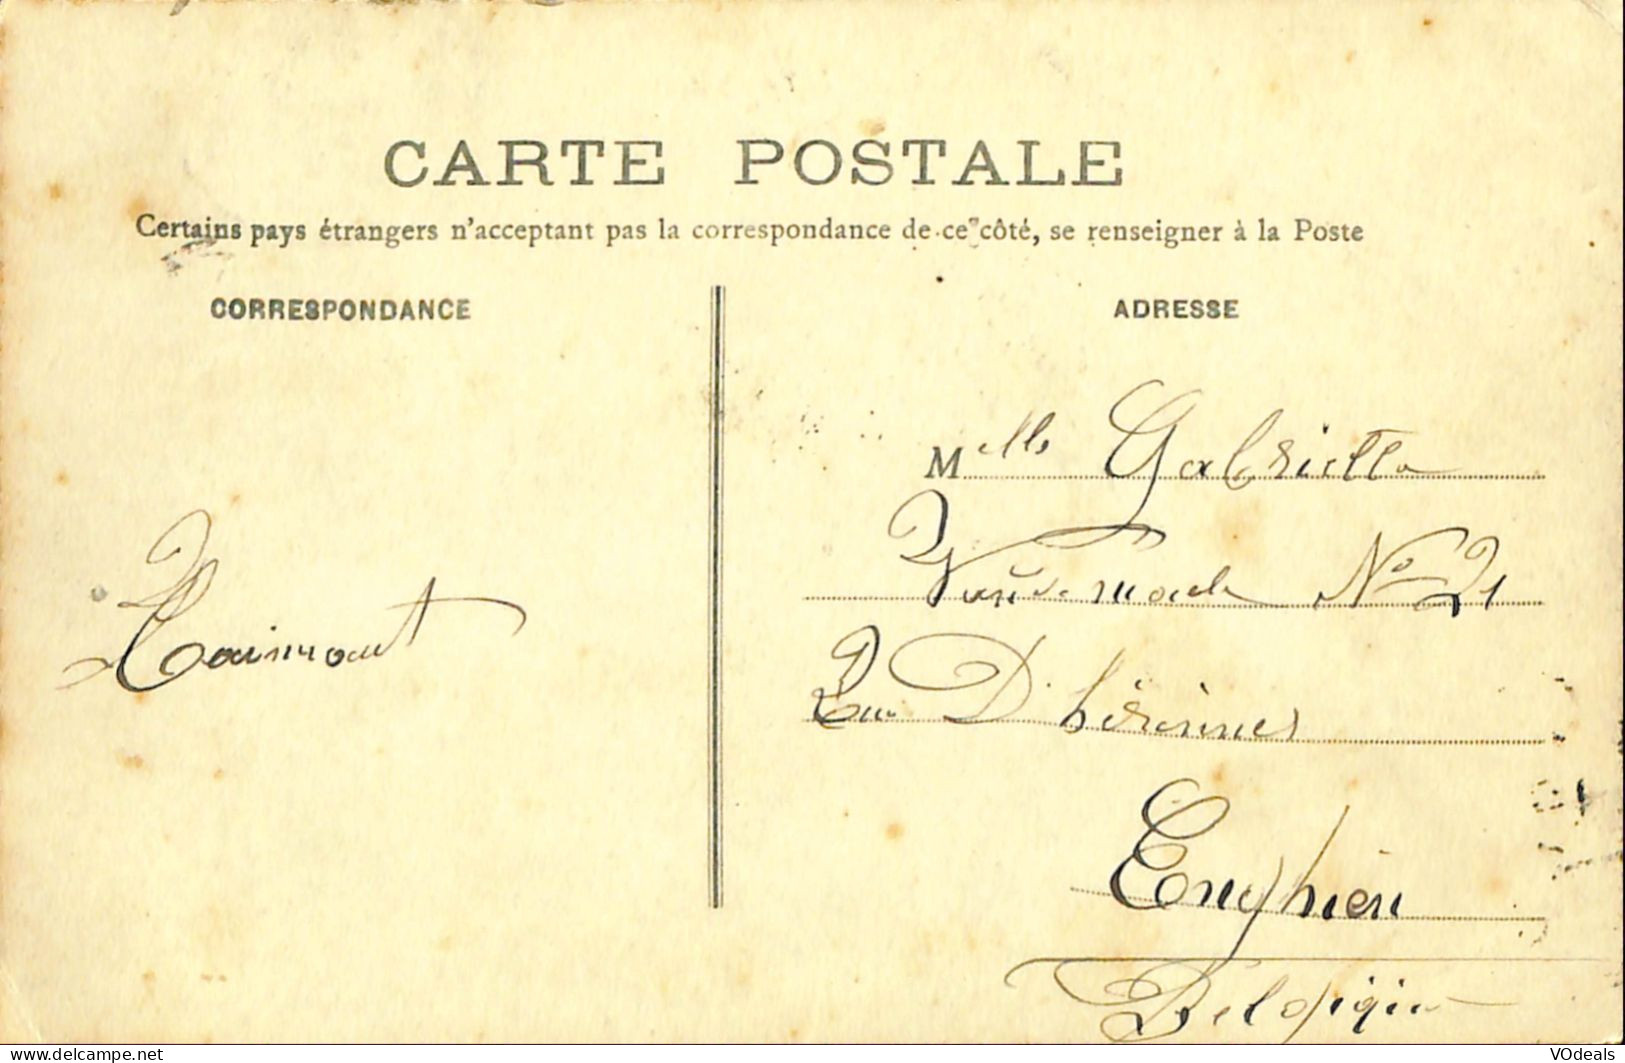 CARTE POSTALE
Certains pays étrangers n'acceptant pas la correspondance de ce côté, se renseigner à la Poste
CORRESPONDANCE
ADRESSE
Melle Gabriella
No 21
D'hérinnes
Enghien
Belgique
www.delcampe.net
VOdeals